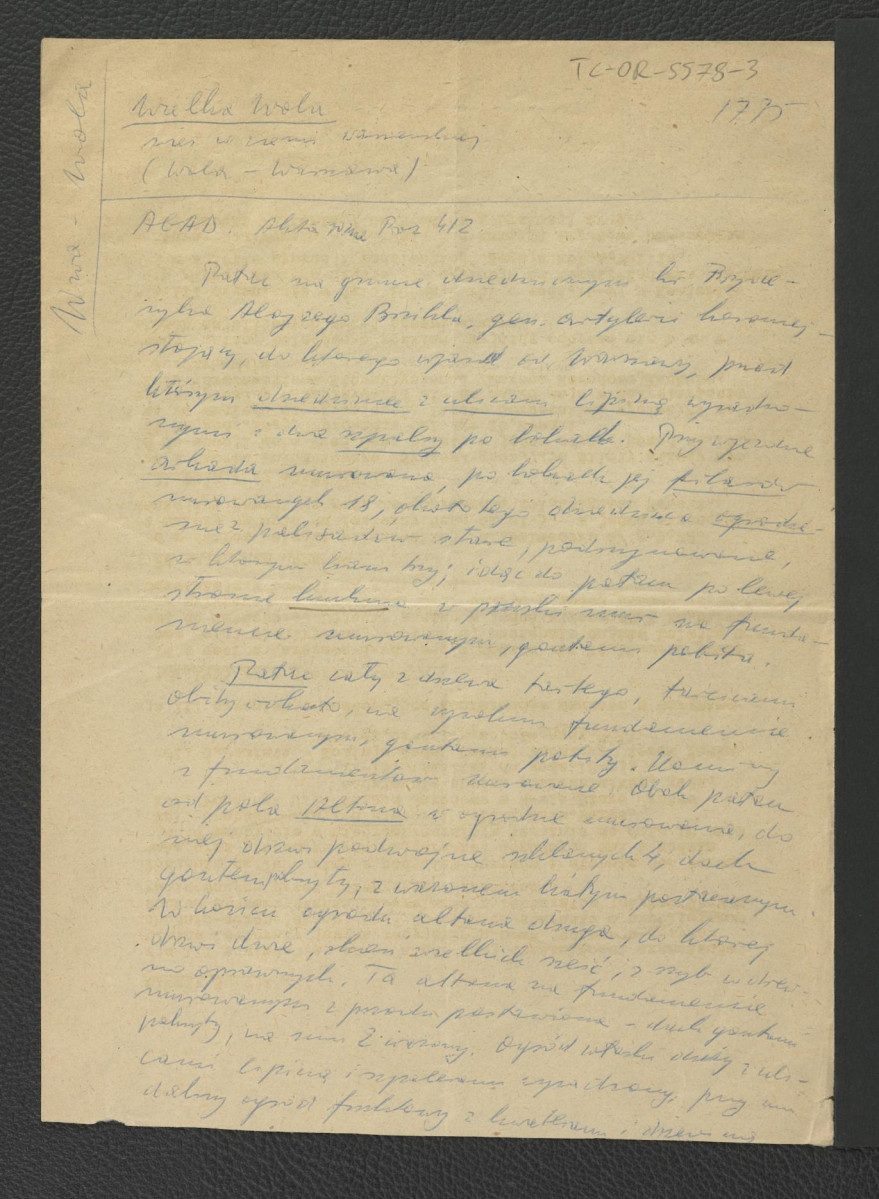 TC-OR-5578-3
1775
Wwa - Wola
Wielka Wola
wieś w ziemi warszawskiej
(Wola - Warszawa)
AGAD. Akta różne Poz 412
Pałac na gruncie dziedzicznym hr Fryde-
ryka Alojzego Brühla, gen. artylerii koronnej
stojący, do którego wjazd od Warszawy, przed
którym dziedziniec z ulicami lipiną wysadzo-
nymi i dwa szpalery po bokach. Przy wjeździe
arkada murowana, po bokach jej filarów
murowanych 18, około tego dziedzińca ogrodze-
nie z palisadów stare, podrujnowane,
w którym bram trzy; idąc do pałacu po lewej
stronie kuchnia w pruski mur na funda-
mencie murowanym, gontami pobita.
Pałac cały z drzewa tartego, tarcicami
obity wokoło, na wysokim fundamencie
murowanym, gontami pobity. Kominy
z fundamentów murowane. Obok pałacu
od pola Altana w ogrodzie murowana, do
niej drzwi podwójne szklanych 4, dach
gontem pokryty, z wazonem białym postawionym.
W końcu ogrodu altana druga, do której
drzwi dwie, okien wielkich sześć, z szyb w drew-
no oprawnych. Ta altana na fundamencie
murowanym z przodu postawiona - dach gontami
pokryty, na nim 2 wazony. Ogród włoski duży z uli-
cami lipiną i szpalerami wysadzony, przy nim
dalszy ogród fruktowy z kwaterami i drzewami